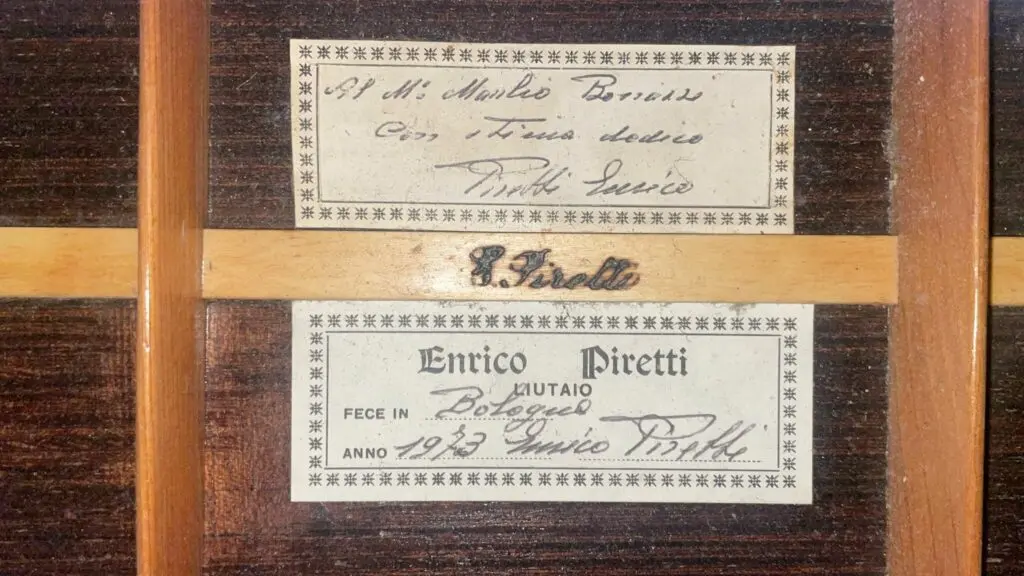 Al M° Manlio Bonazzi
Con stima dedico
Piretti Enrico
E. Piretti
Enrico Piretti
LIUTAIO
FECE IN Bologna
ANNO 1973 Enrico Piretti